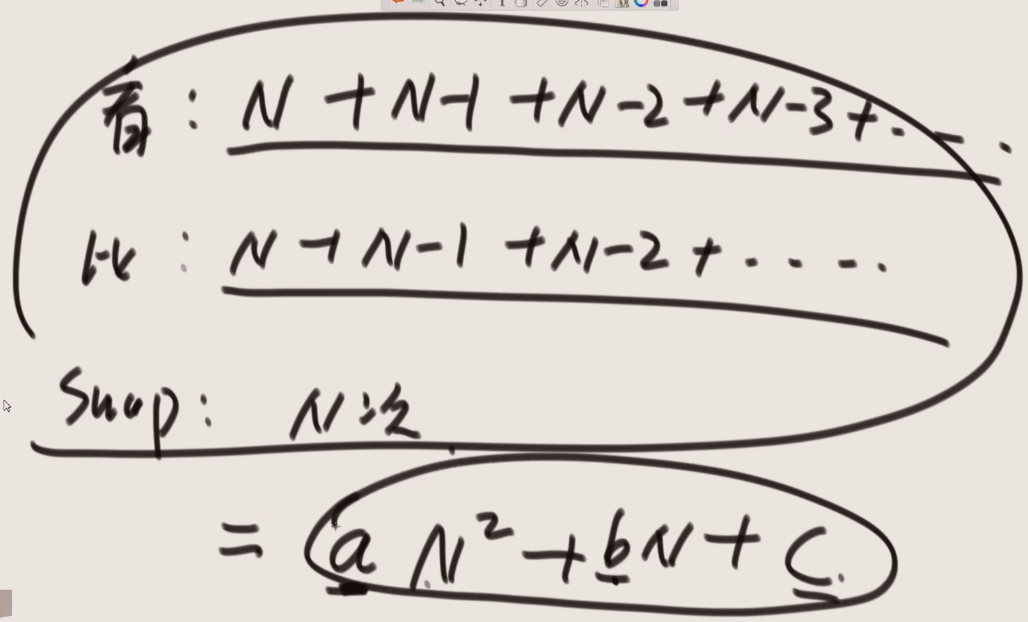 看: N + N-1 + N-2 + N-3 + ....
比: N + N-1 + N-2 + ....
Swap: N次
= aN² + bN + c